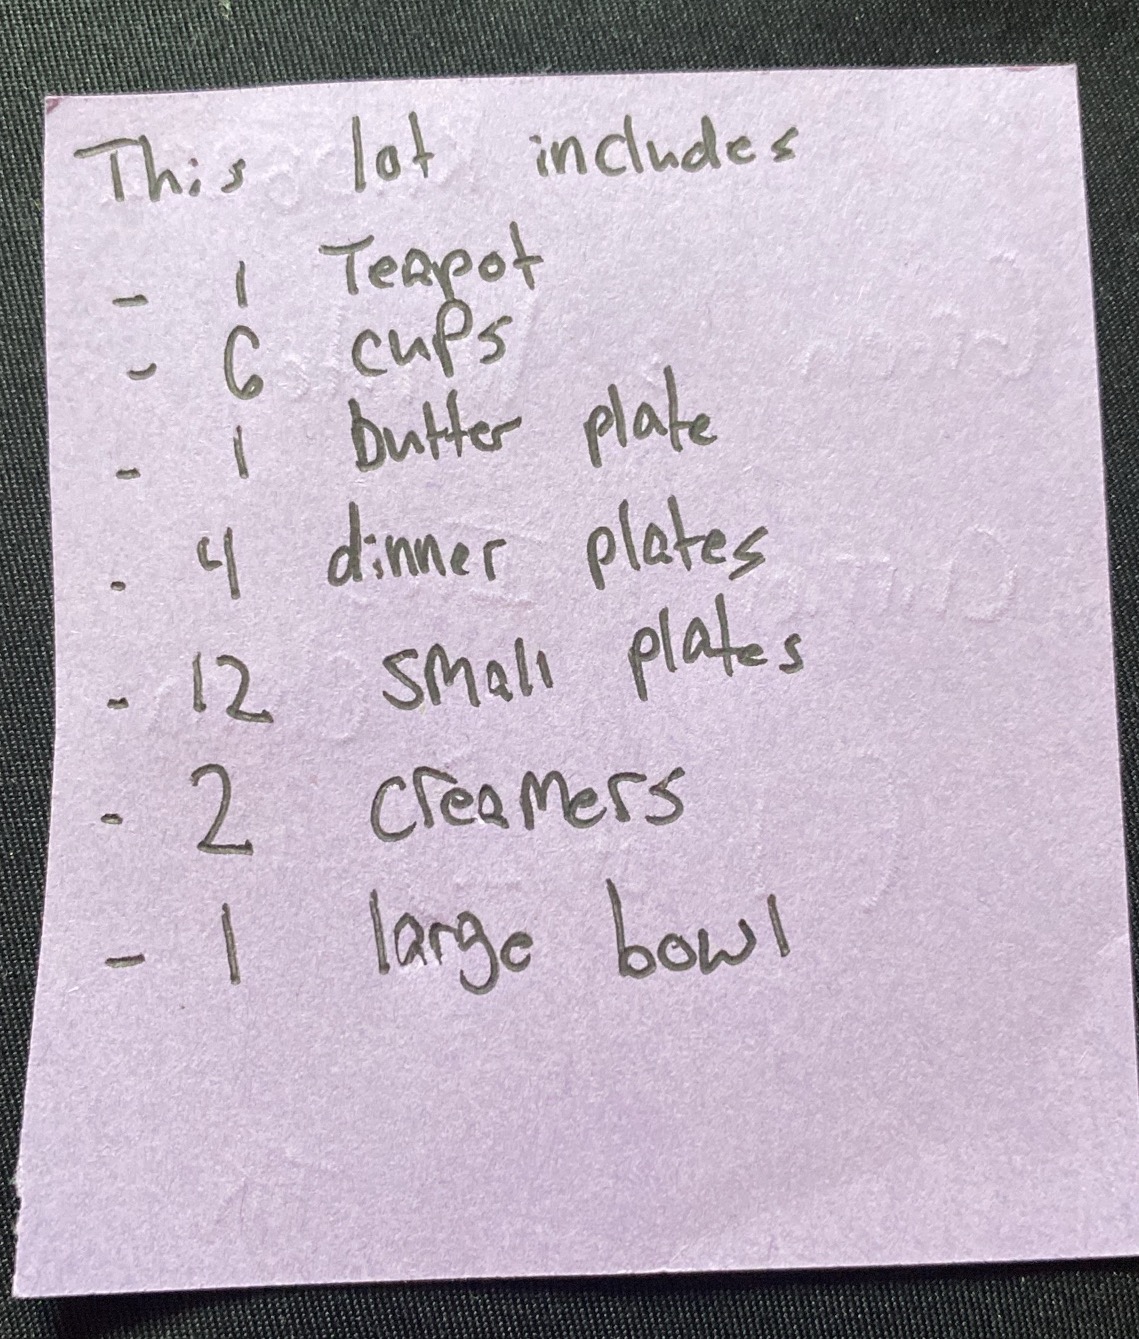 This lot includes
- 1 Teapot
- 6 cups
- 1 butter plate
- 4 dinner plates
- 12 small plates
- 2 creamers
- 1 large bowl